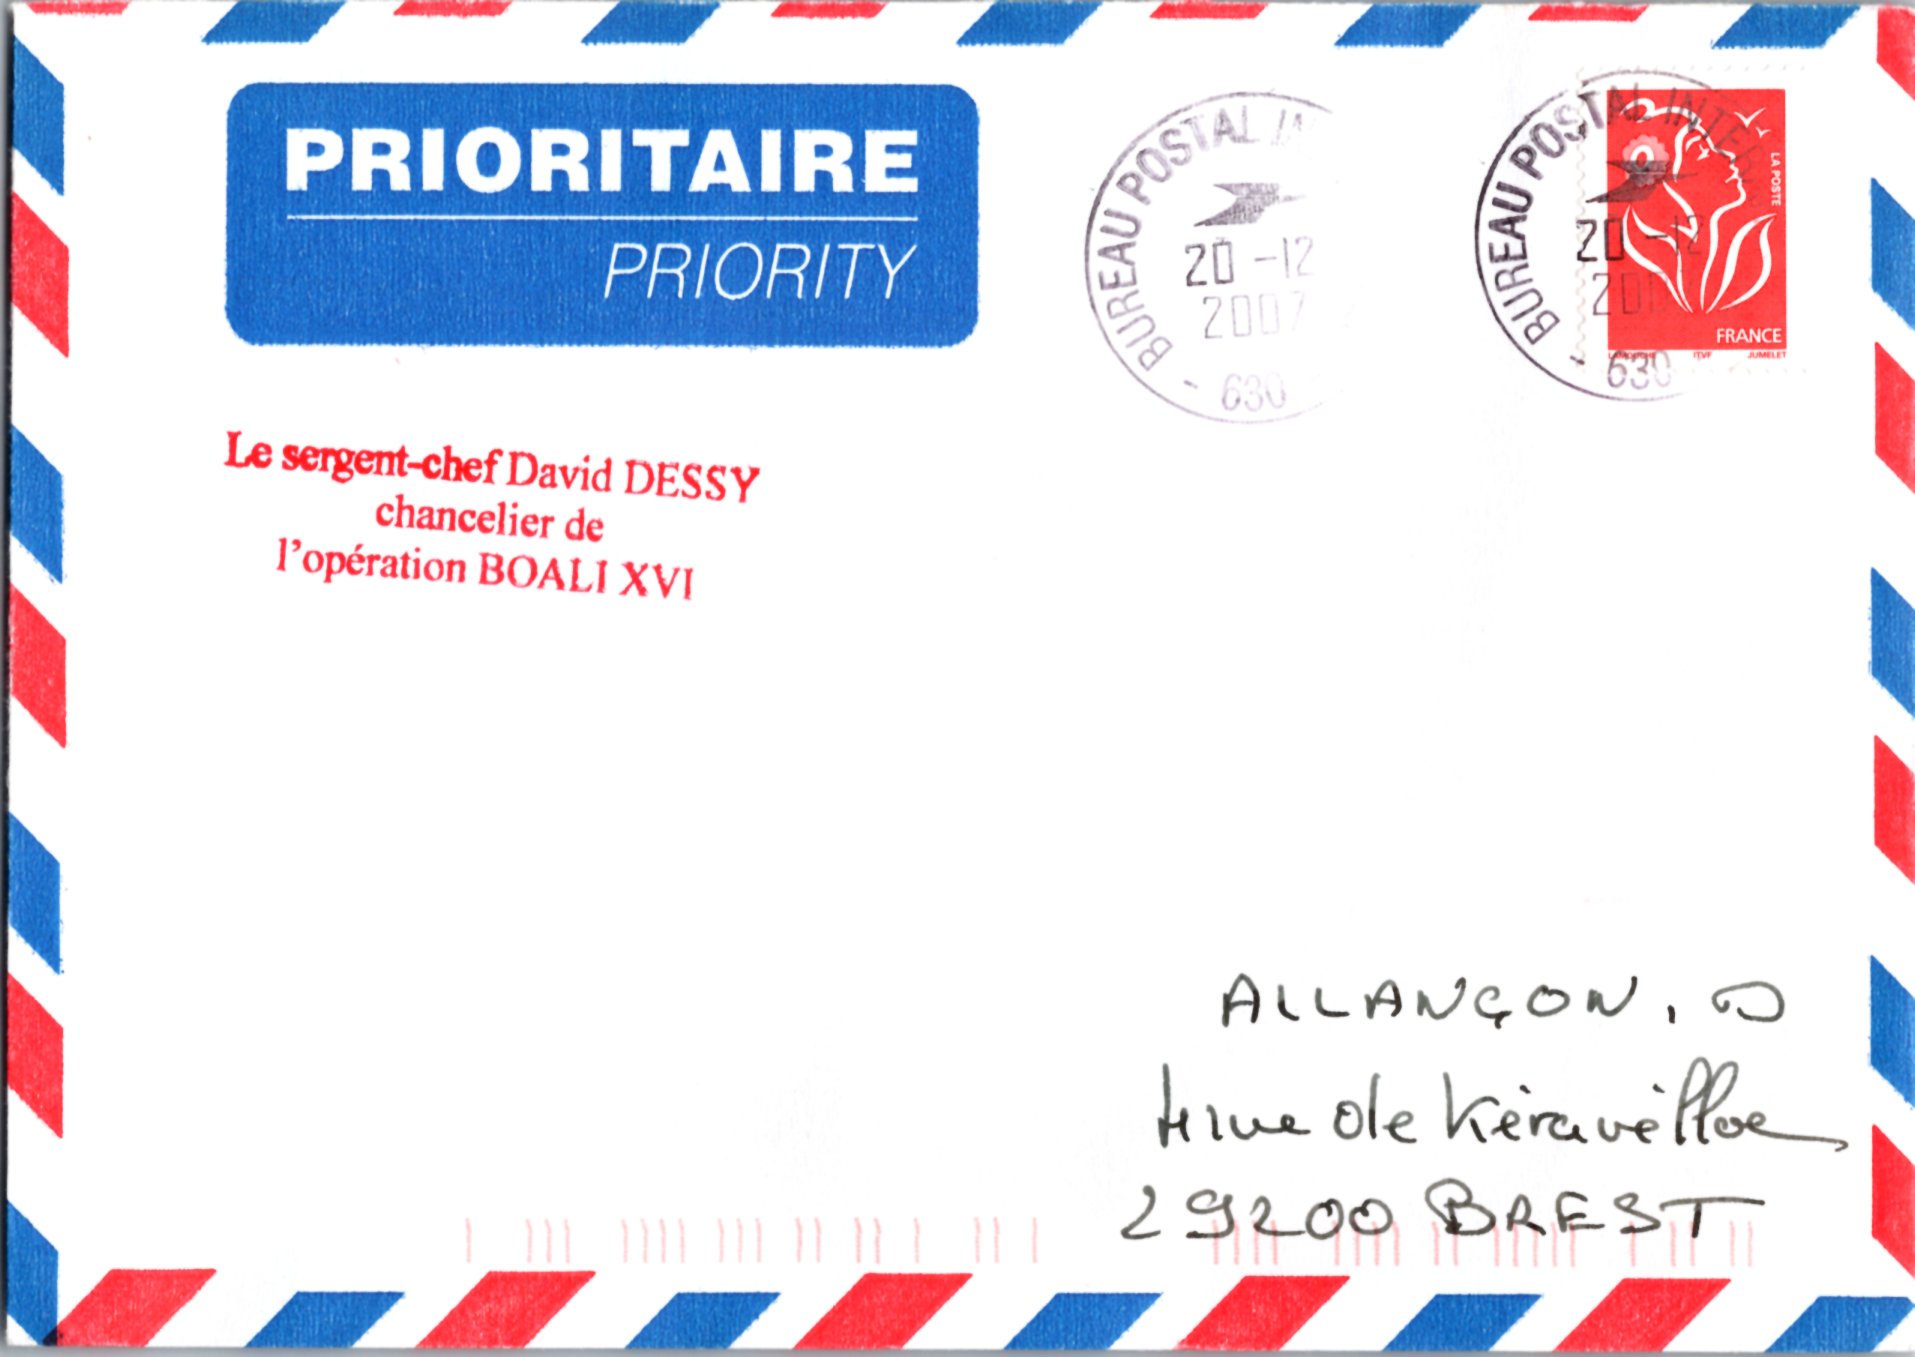 PRIORITAIRE
PRIORITY
BUREAU POSTAL
20 -12
2007
- 630
BUREAU POSTAL INTER
20 -12
- 630
LA POSTE
FRANCE
LAMOUCHE ITVF JUMELET
Le sergent-chef David DESSY
chancelier de
l'opération BOALI XVI
ALLANÇON. D
rue de
29200 BREST